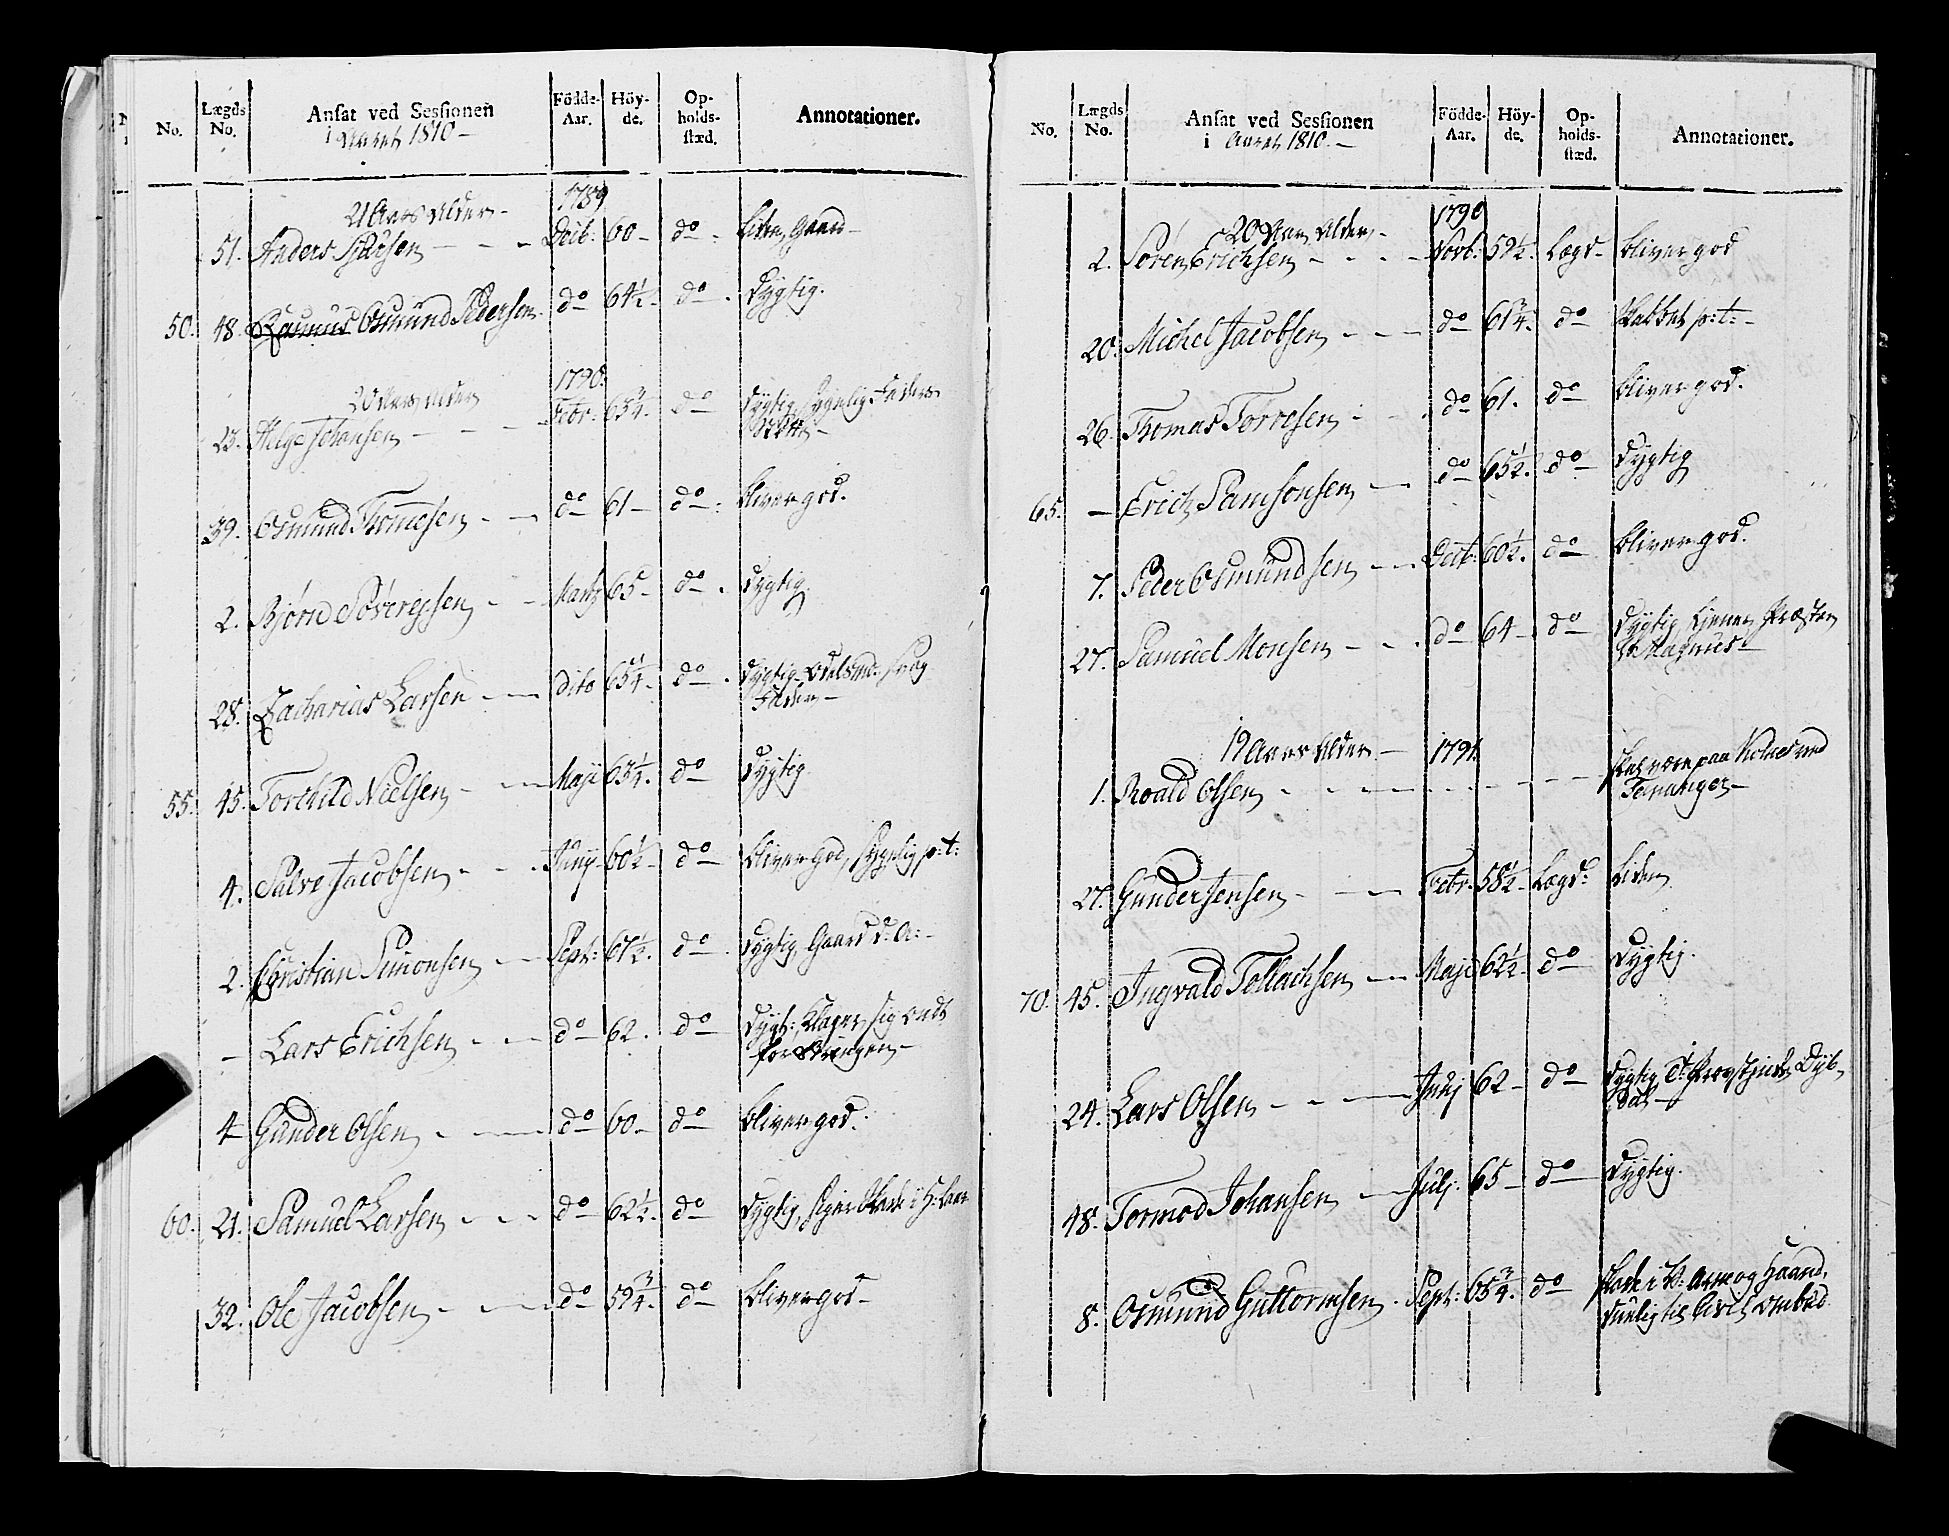 No. Lægds No. Ansat ved Sessionen i Aaret 1810 Födde-Aar. Höy-de. Op-holds-stæd. Annotationer.
21 Aars Alder 1789
51. Anders Decb: 60 do Liden, Gaard
50. 48. Osmund Pedersen do 64½ do Dygtig.
20 Aars Alder 1790
23. Helge Johansen Febr: 63¾ do Dygtig, Sygelig Faders
39. Osmund Thomesen do 61 do bliver god.
2. Bjørn Martz 65 do Dygtig
28. Zacharias Larsen dito 65¼ do Dygtig, Odelsmd. svag
Fader
55. 45. Torkild Nielsen Maji 63¼ do Dygtig
4. Salve Jacobsen Junij 60½ do bliver god, Sygelig p:t:
2. Christian Simonsen Sept: 67½ do Dygtig, Gaard d: A:
– Lars Erichsen do 62. do Dygt:, Klager sig ondt
for
4 Gunder Olsen do 60 do bliver god.
60. 21. Samuel Larsen do 62½ do Dygtig,
32. Ole Jacobsen do 59¾ do bliver god
No. Lægds No. Ansat ved Sessionen i Aaret 1810. Födde-Aar. Höy-de. Op-holds-stæd. Annotationer.
20 Aars Alder 1790
2. Søren Erichsen Novb: 59½ Lægd bliver god
20. Michel Jacobsen do 61¾ do p:t:
26. Thomas do 61. do bliver god.
65. – Erich Samsonsen do 65½ do Dygtig
7. Peder Osmundsen Decb: 60½ do bliver god.
27. Samuel Monsen do 64 do Dygtig, tjener Præsten
Magnus
19 Aars Alder 1791
1. Roald Olsen skal være paa
27. Gunder Jensen Febr. 58½ Lægd: Liden
70. 45. Ingvald Tellachsen Maji 62½ do Dygtig.
24. Lars Olsen Junj 62 do Dygtig,
48. Tormod Johansen Julj. 65 do Dygtig.
8. Osmund Guttormsen Sept: 65¾ do Skade i V: Arm og Haand,